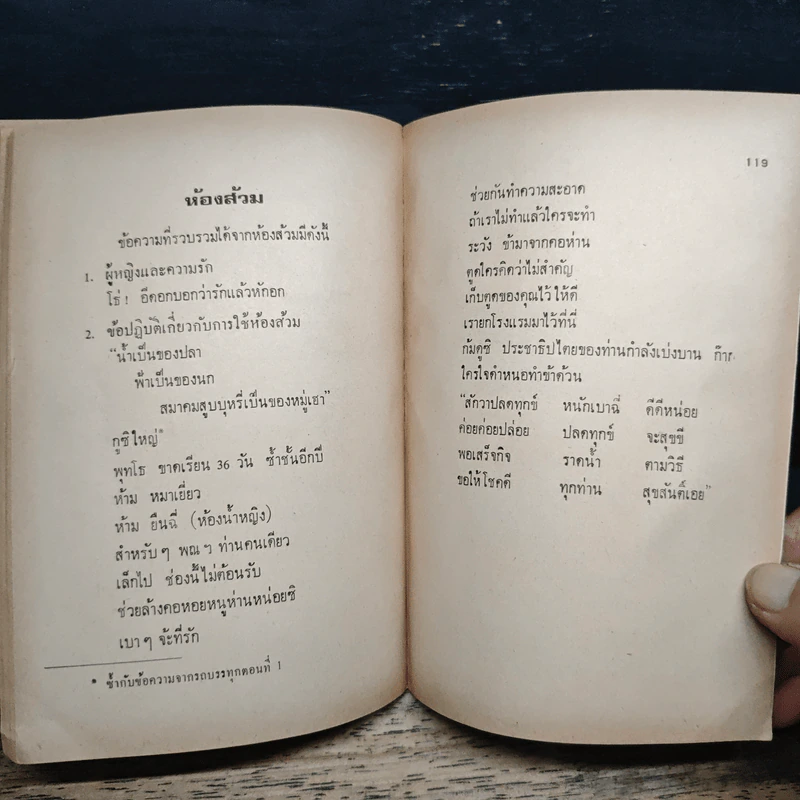 ห้องส้วม
ข้อความที่รวบรวมได้จากห้องส้วมมีดังนี้
1. ผู้หญิงและความรัก
โธ่ ! อีดอกบอกว่ารักแล้วหักอก
2. ข้อปฏิบัติเกี่ยวกับการใช้ห้องส้วม
“น้ำเป็นของปลา
ฟ้าเป็นของนก
สมาคมสูบบุหรี่เป็นของหมู่เฮา”
กูซิใหญ่*
พุทโธ ขาดเรียน 36 วัน ซ้ำชั้นอีกปี
ห้าม หมาเยี่ยว
ห้าม ยืนฉี่ (ห้องน้ำหญิง)
สำหรับ ๆ พณ ๆ ท่านคนเดียว
เล็กไป ช่องนี้ไม่ต้อนรับ
ช่วยล้างคอหอยหนูห่านหน่อยซิ
เบา ๆ จ้ะที่รัก
* ซ้ำกับข้อความจากรถบรรทุกตอนที่ 1
119
ช่วยกันทำความสะอาด
ถ้าเราไม่ทำแล้วใครจะทำ
ระวัง ข้ามาจากคอห่าน
ตูดใครคิดว่าไม่สำคัญ
เก็บตูดของคุณไว้ให้ดี
เรายกโรงแรมมาไว้ที่นี่
ก้มดูซิ ประชาธิปไตยของท่านกำลังเบ่งบาน
ใครใจดำหนอทำข้าด้วน
“สักวาปลดทุกข์ หนักเบาฉี่ ดีดีหน่อย
ค่อยค่อยปล่อย ปลดทุกข์ จะสุขขี
พอเสร็จกิจ ราดน้ำ ตามวิธี
ขอให้โชคดี ทุกท่าน สุขสันติ์เอย”